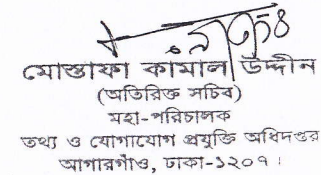 মোস্তাফা কামাল উদ্দীন
(অতিরিক্ত সচিব)
মহা-পরিচালক
তথ্য ও যোগাযোগ প্রযুক্তি অধিদপ্তর
আগারগাঁও, ঢাকা-১২০৭।